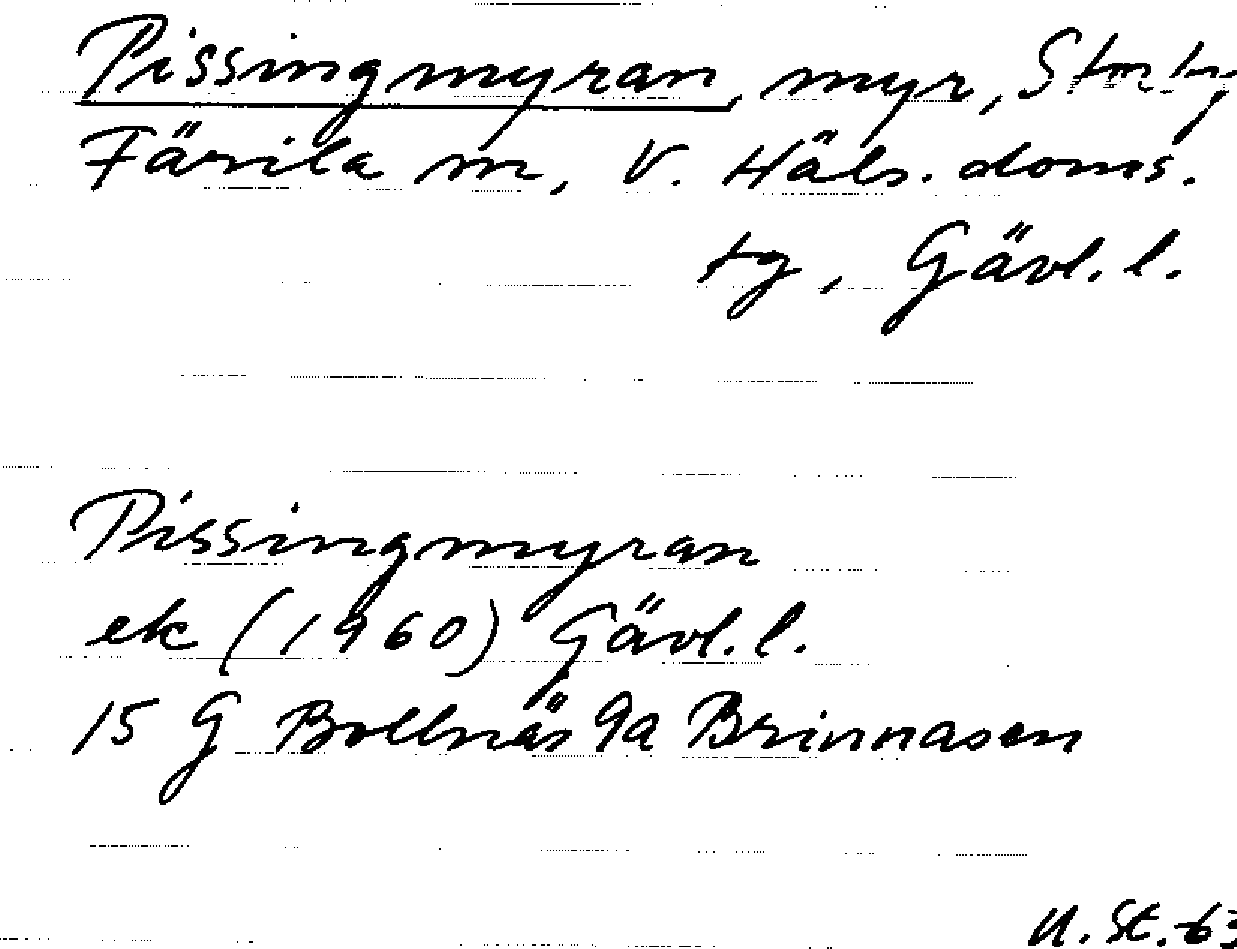 Pissingmyran, myr,
Färila sn, V. Häls. doms.
tg, Gävl. l.
Pissingmyran
ek (1960) Gävl. l.
15 G Bollnäs 9a Brinnåsen
U. St. -63